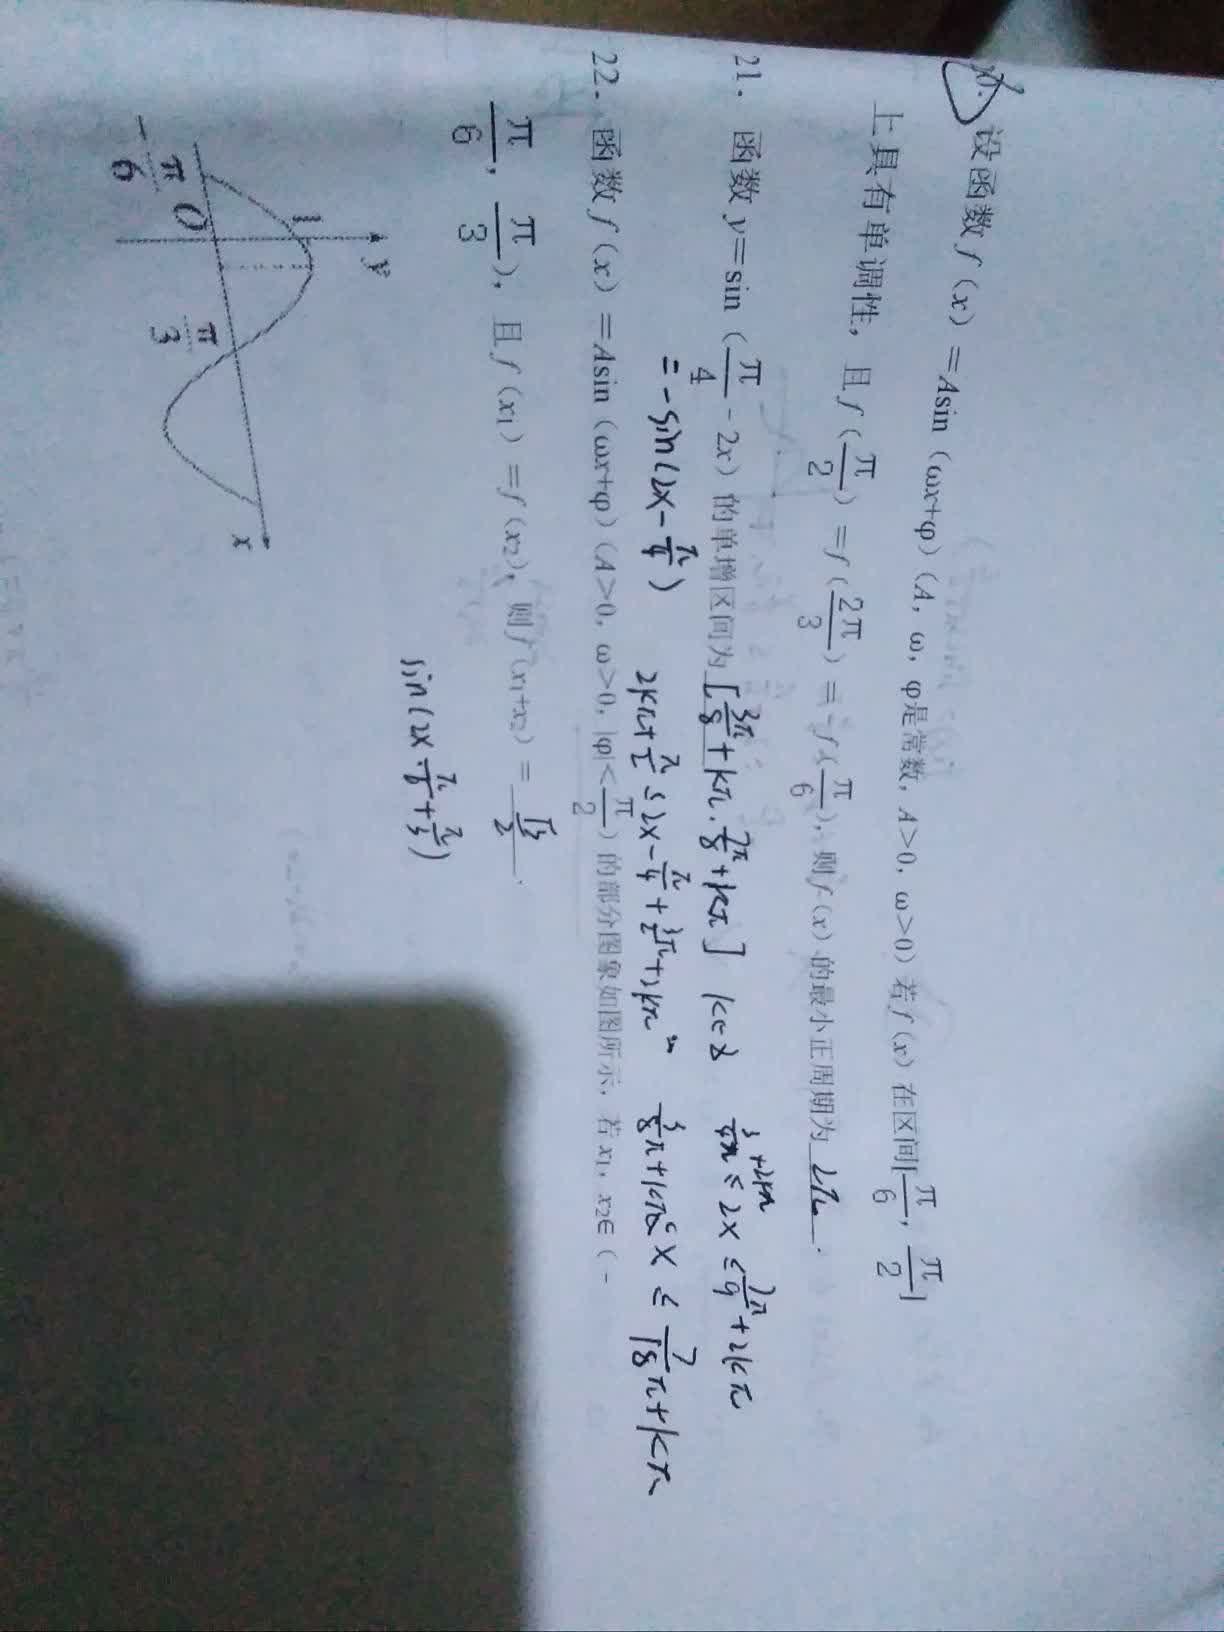 20. 设函数 f(x)=Asin(ωx+φ)(A, ω, φ是常数, A>0, ω>0)若 f(x)在区间[π/6, π/2]
上具有单调性, 且 f(π/2)=f(2π/3)=-f(π/6), 则 f(x)的最小正周期为 2π.
21. 函数 y=sin(π/4-2x)的单增区间为[3π/8+kπ, 7π/8+kπ] k∈Z
3/4π+2kπ≤2x≤7π/4+2kπ
=-sin(2x-π/4)
2kπ+π/2≤2x-π/4≤3π/2+2kπ
3/8π+kπ≤x≤7/8π+kπ
22. 函数 f(x)=Asin(ωx+φ)(A>0, ω>0, |φ|<π/2)的部分图象如图所示, 若 x₁, x₂∈(-
π/6, π/3), 且 f(x₁)=f(x₂), 则 f(x₁+x₂)=√3/2.
sin(2x·π/6+π/3)
y
1
-π/6
O
π/3
x